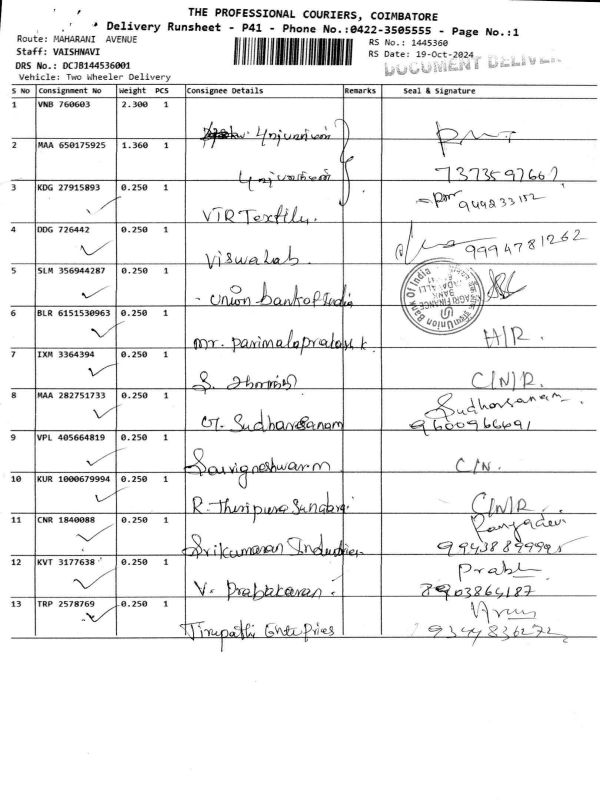 THE PROFESSIONAL COURIERS, COIMBATORE
Delivery Runsheet - P41 - Phone No.:0422-3505555 - Page No.:1
Route: MAHARANI AVENUE
RS No.: 1445360
Staff: VAISHNAVI
RS Date: 19-Oct-2024
DRS No.: DCJB144536001
DOCUMENT DELIVE
Vehicle: Two Wheeler Delivery
S No Consignment No Weight PCS Consignee Details Remarks Seal & Signature
1 VNB 760603 2.300 1
2 MAA 650175925 1.360 1
7373597667
3 KDG 27915893 0.250 1 VTR Textily.
4 DDG 726442 0.250 1 Viswalab 9994781262
5 SLM 356944287 0.250 1 - Union bank of India
Union Bank Of India
6 BLR 6151530963 0.250 1 mr. parimalaprakash k H/R.
7 IXM 3364394 0.250 1 C/N/R.
8 MAA 282751733 0.250 1 Sudharsanam Sudharsanam
9600966691
9 VPL 405664819 0.250 1 C/N.
10 KUR 1000679994 0.250 1 C/N/R.
11 CNR 1840088 0.250 1 Srikumaran Industries Rangadevi
9943889995
12 KVT 3177638 0.250 1 V. Prabakaran. Prabh
8903864187
13 TRP 2578769 0.250 1 Tirupathi Enterprises Arun
9344836272